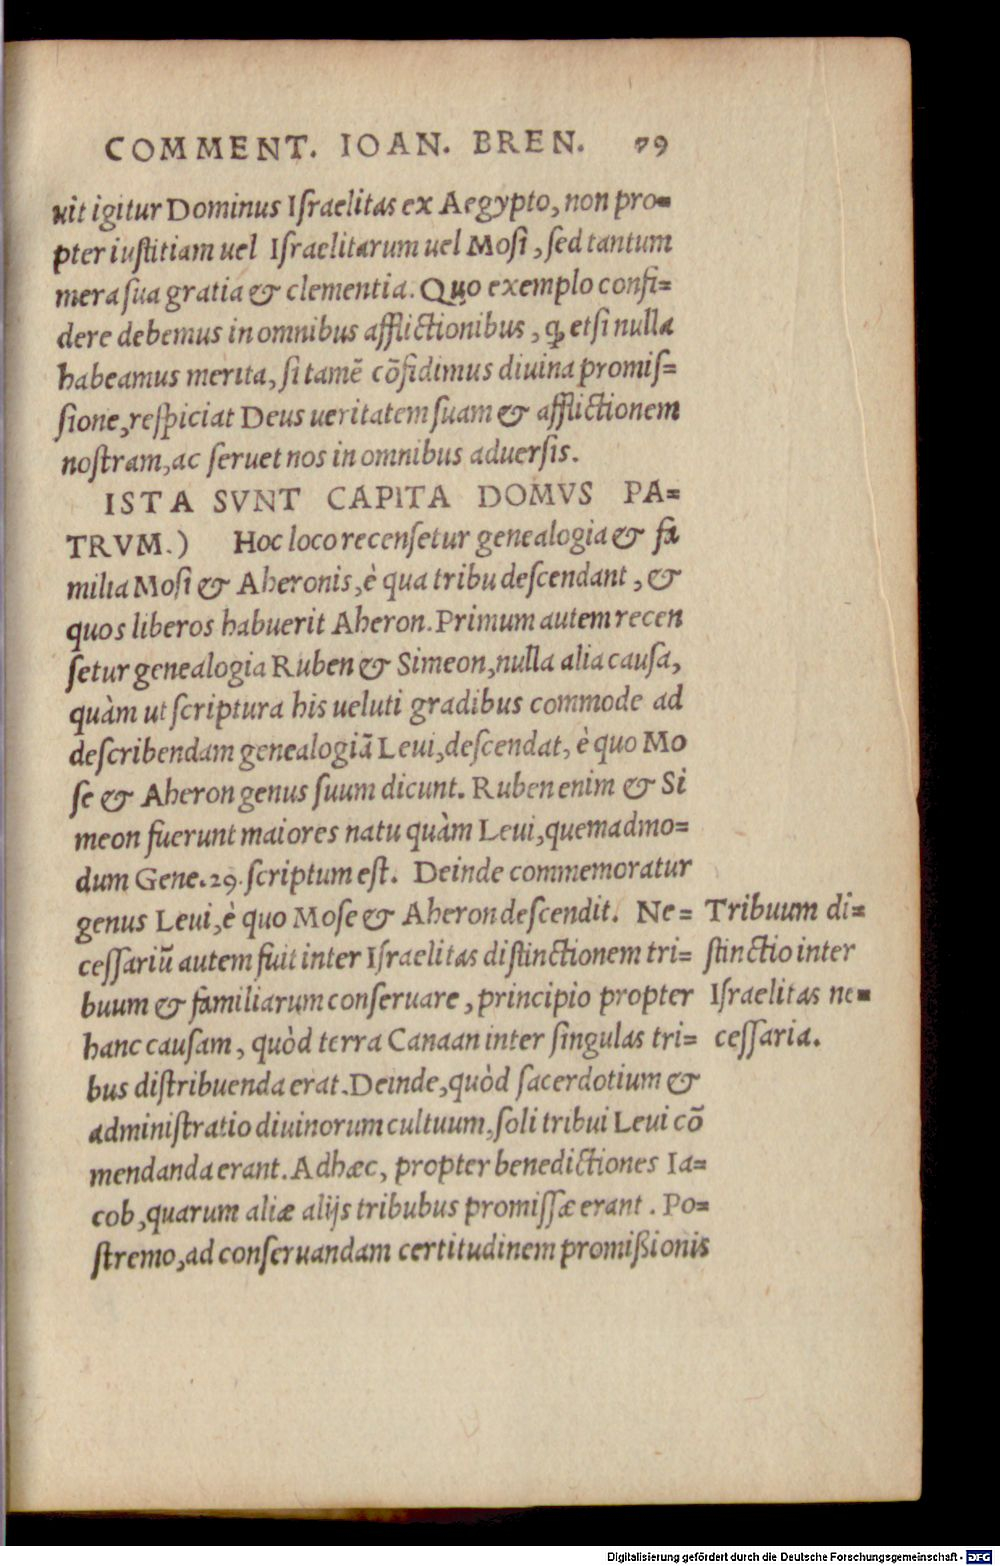 COMMENT. IOAN. BREN. 79
uit igitur Dominus Iſraelitas ex Aegypto, non pro=
pter iuſtitiam uel Iſraelitarum uel Moſi, ſed tantum
mera ſua gratia & clementia. Quo exemplo confi=
dere debemus in omnibus afflictionibus, ꝙ etſi nulla
habeamus merita, ſi tamē cōfidimus diuina promiſ=
ſione, reſpiciat Deus ueritatem ſuam & afflictionem
noſtram, ac ſeruet nos in omnibus aduerſis.
ISTA SVNT CAPITA DOMVS PA=
TRVM.) Hoc loco recenſetur genealogia & fa
milia Moſi & Aheronis, è qua tribu deſcendant, &
quos liberos habuerit Aheron. Primum autem recen
ſetur genealogia Ruben & Simeon, nulla alia cauſa,
quàm ut ſcriptura his ueluti gradibus commode ad
deſcribendam genealogiā Leui, deſcendat, è quo Mo
ſe & Aheron genus ſuum dicunt. Ruben enim & Si
meon fuerunt maiores natu quàm Leui, quemadmo=
dum Gene. 29. ſcriptum eſt. Deinde commemoratur
genus Leui, è quo Moſe & Aheron deſcendit. Ne=
ceſſariū autem fuit inter Iſraelitas diſtinctionem tri=
buum & familiarum conſeruare, principio propter
hanc cauſam, quòd terra Canaan inter ſingulas tri=
bus diſtribuenda erat. Deinde, quòd ſacerdotium &
adminiſtratio diuinorum cultuum, ſoli tribui Leui cō
mendanda erant. Adhæc, propter benedictiones Ia=
cob, quarum aliæ alijs tribubus promiſſæ erant. Po=
ſtremo, ad conſeruandam certitudinem promißionis
Tribuum di=
ſtinctio inter
Iſraelitas ne=
ceſſaria.
Digitalisierung gefördert durch die Deutsche Forschungsgemeinschaft - DFG